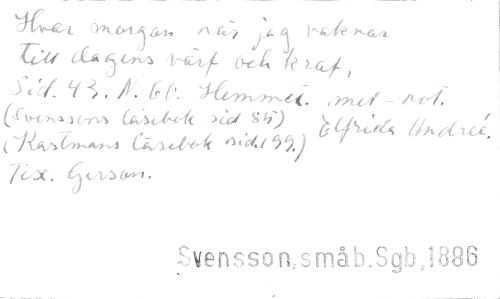 Hvar morgon när jag vaknar
till dagens värf och kraf,
Sid. 43. N. 60. Hemmet. met-not.
(Svenssons läsebok sid 85) Elfrida Andreé.
(Kastmans läsebok sid. 199.)
Tex. Gerson.
Svensson, småb. Sgb, 1886